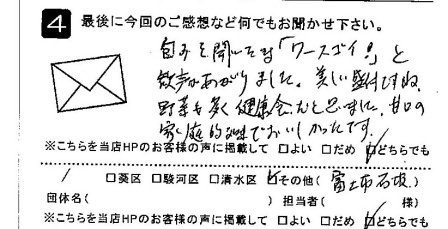 4 最後に今回のご感想など何でもお聞かせ下さい。
包みを開いたら「ワースゴイ!」と
歓声があがりました。美しい盛付ですね。
野菜も多く健康食だと思いました。甘口の
家庭的な味でおいしかったです。
※こちらを当店HPのお客様の声に掲載して □よい □だめ ☑どちらでも
□葵区 □駿河区 □清水区 ☑その他(富士市石坂)
団体名( ) 担当者( 様)
※こちらを当店HPのお客様の声に掲載して □よい □だめ ☑どちらでも